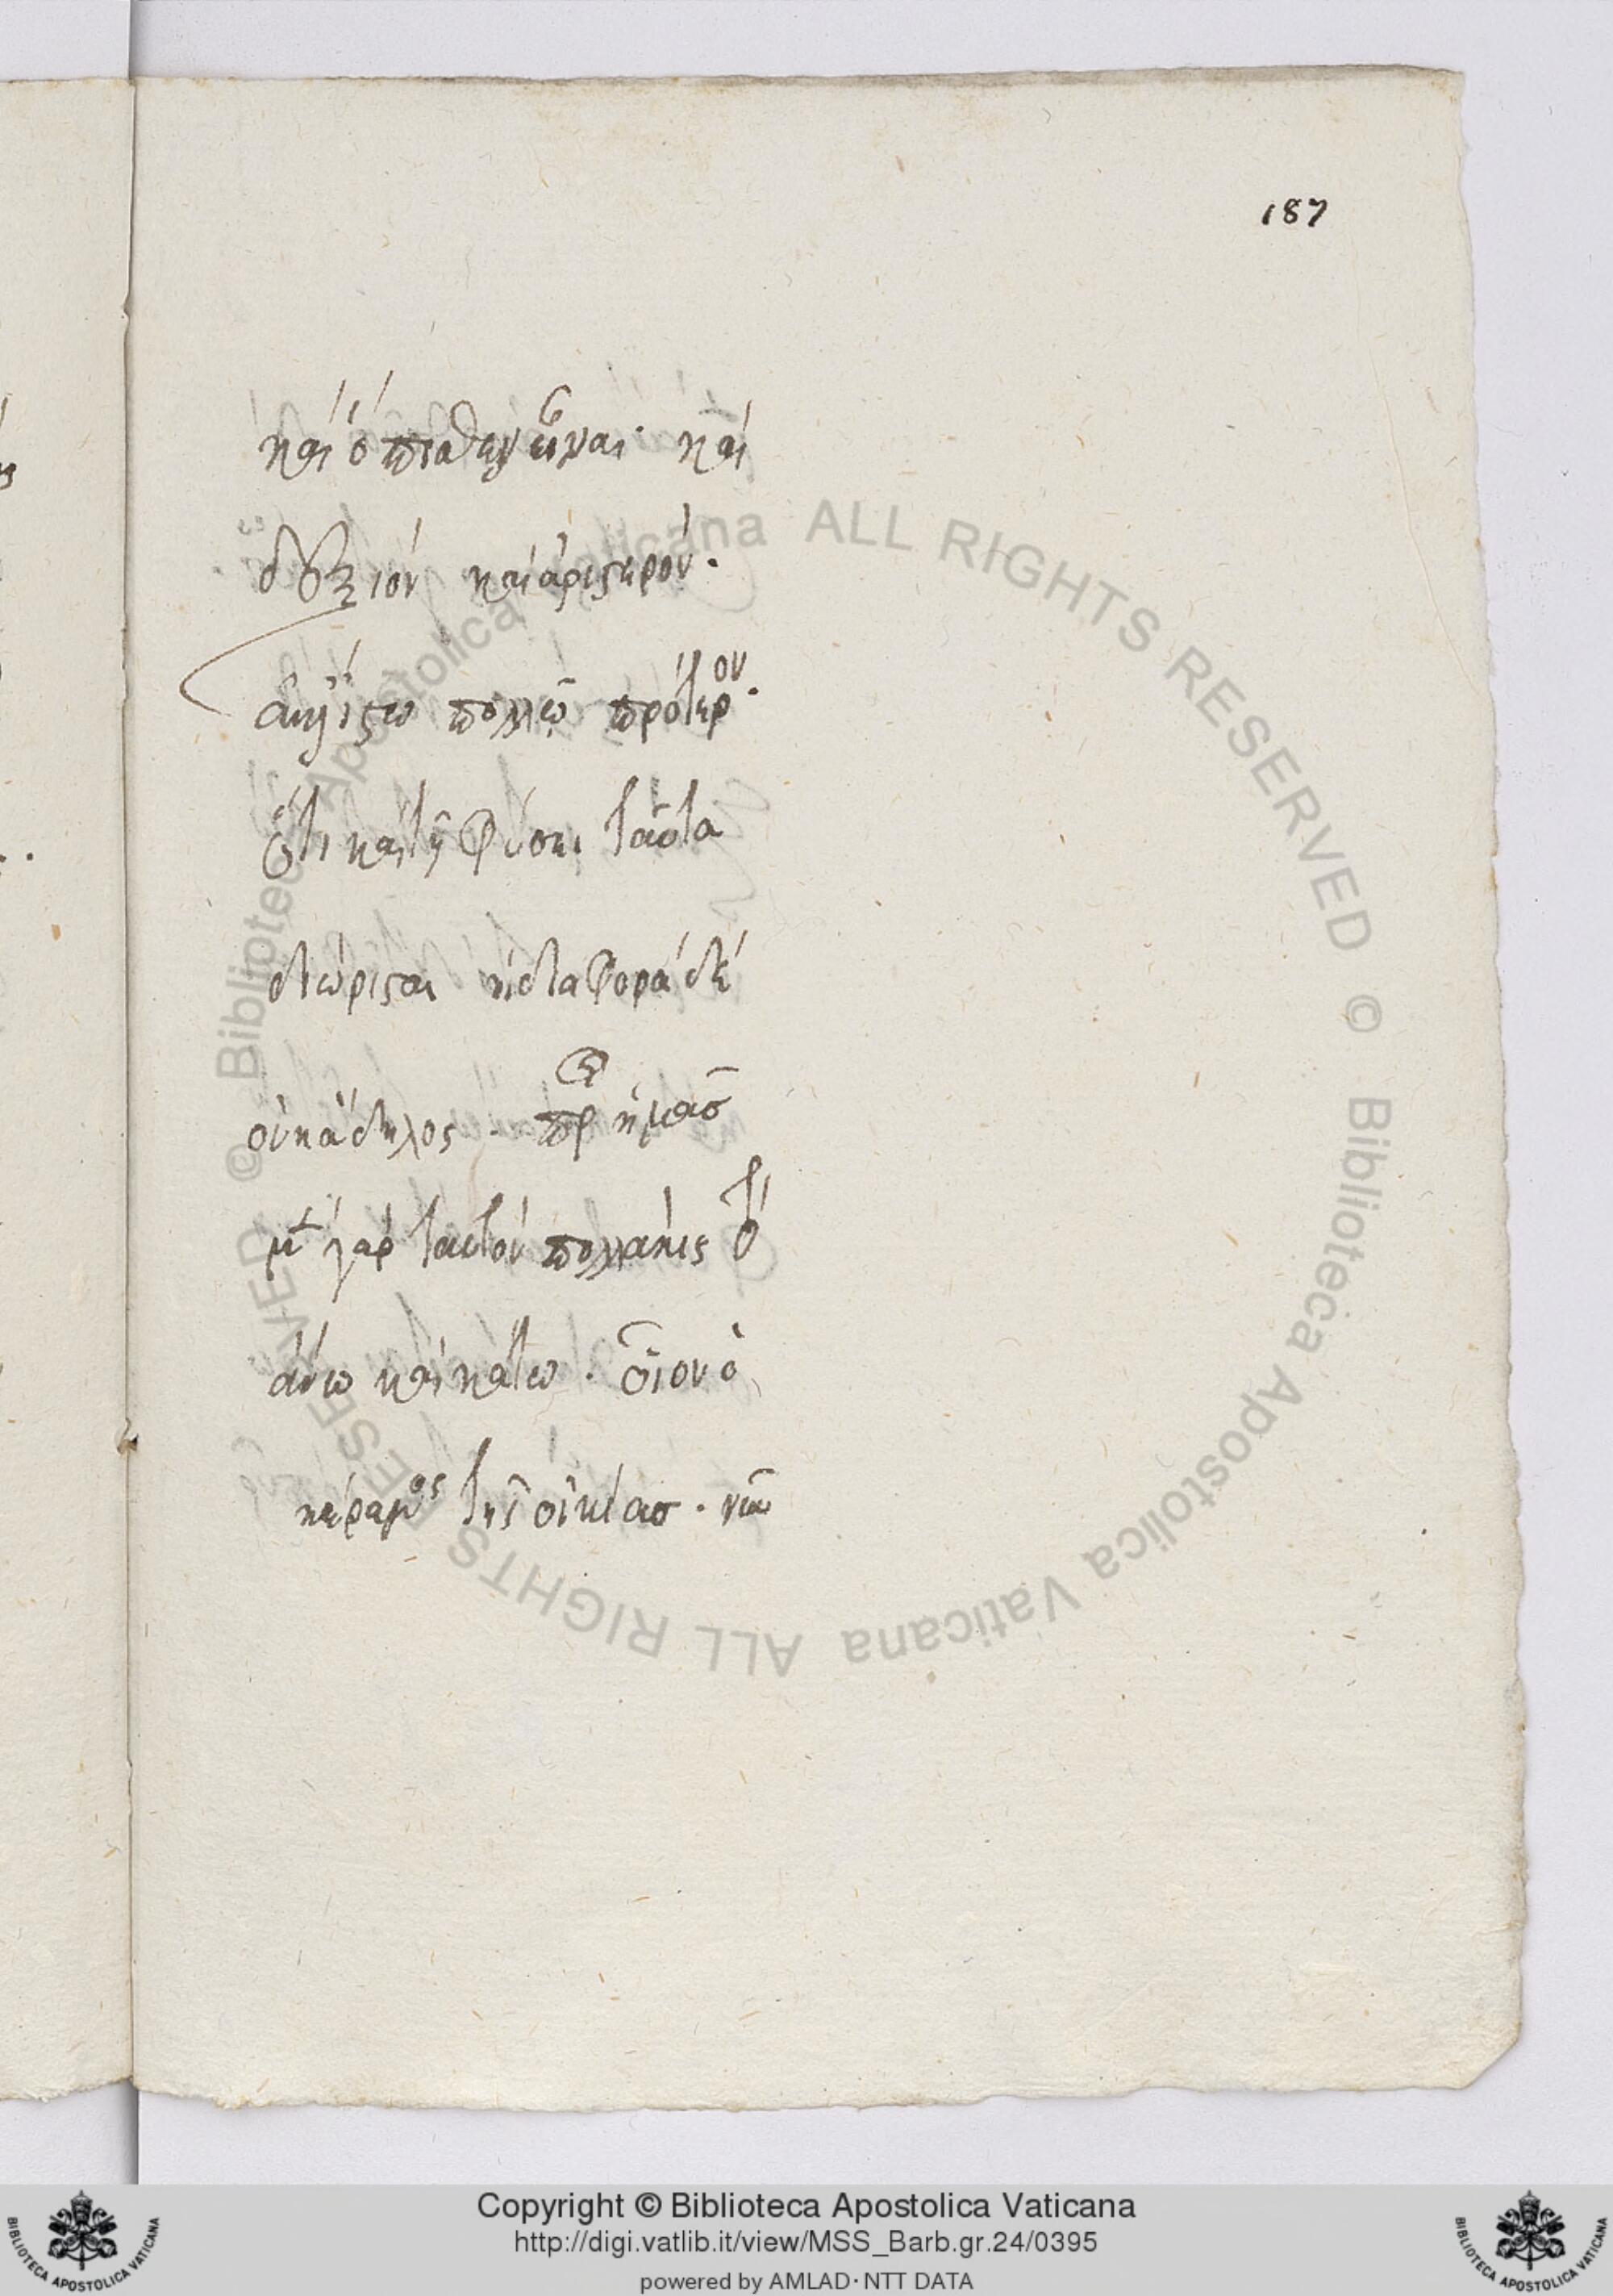 187
καὶ ὄπισθεν εἶναι· καὶ
δεξιὸν καὶ ἀριστερόν·
ἀκηκίστω πολλῶ πρότερον·
ὅτι καὶ τῇ φύσει ταῦτα
διώρισται ἡ διαφορὰ δὲ
οὐκ ἄδηλος · πρὸς ἡμᾶσ
μὲν γὰρ ταυτὸν πολλάκις τὸ
ἄνω καὶ κάτω · οἷον ὁ
κέραμος τῆς οἰκίασ · νῦν
© Biblioteca Apostolica Vaticana ALL RIGHTS RESERVED © Biblioteca Apostolica Vaticana ALL RIGHTS RESERVED
Copyright © Biblioteca Apostolica Vaticana
http://digi.vatlib.it/view/MSS_Barb.gr.24/0395
powered by AMLAD·NTT DATA
BIBLIOTECA APOSTOLICA VATICANA
BIBLIOTECA APOSTOLICA VATICANA